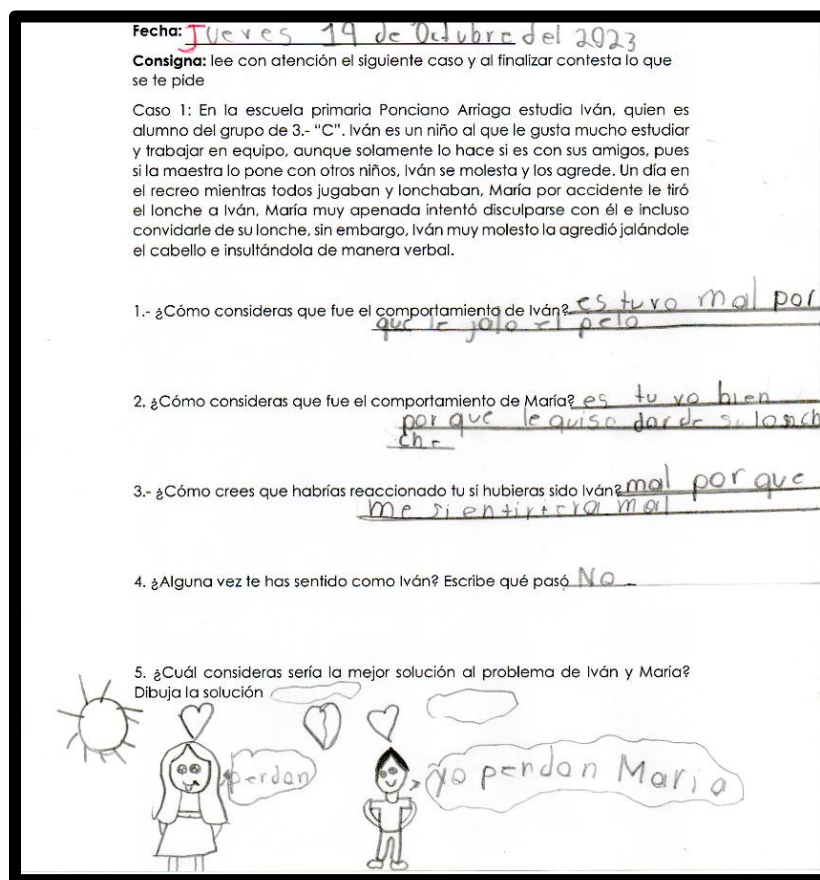 Fecha: Jueves 19 de Octubre del 2023
Consigna: lee con atención el siguiente caso y al finalizar contesta lo que
se te pide
Caso 1: En la escuela primaria Ponciano Arriaga estudia Iván, quien es
alumno del grupo de 3.- “C”. Iván es un niño al que le gusta mucho estudiar
y trabajar en equipo, aunque solamente lo hace si es con sus amigos, pues
si la maestra lo pone con otros niños, Iván se molesta y los agrede. Un día en
el recreo mientras todos jugaban y lonchaban, María por accidente le tiró
el lonche a Iván, María muy apenada intentó disculparse con él e incluso
convidarle de su lonche, sin embargo, Iván muy molesto la agredió jalándole
el cabello e insultándola de manera verbal.
1.- ¿Cómo consideras que fue el comportamiento de Iván? es tuvo mal por
que le jalo el pelo
2. ¿Cómo consideras que fue el comportamiento de María? es tu vo bien
por que le quiso dar de su lonch
che
3.- ¿Cómo crees que habrías reaccionado tu sí hubieras sido Iván? mal por que
me mal
4. ¿Alguna vez te has sentido como Iván? Escribe qué pasó No
5. ¿Cuál consideras sería la mejor solución al problema de Iván y María?
Dibuja la solución
perdon
yo perdon Maria